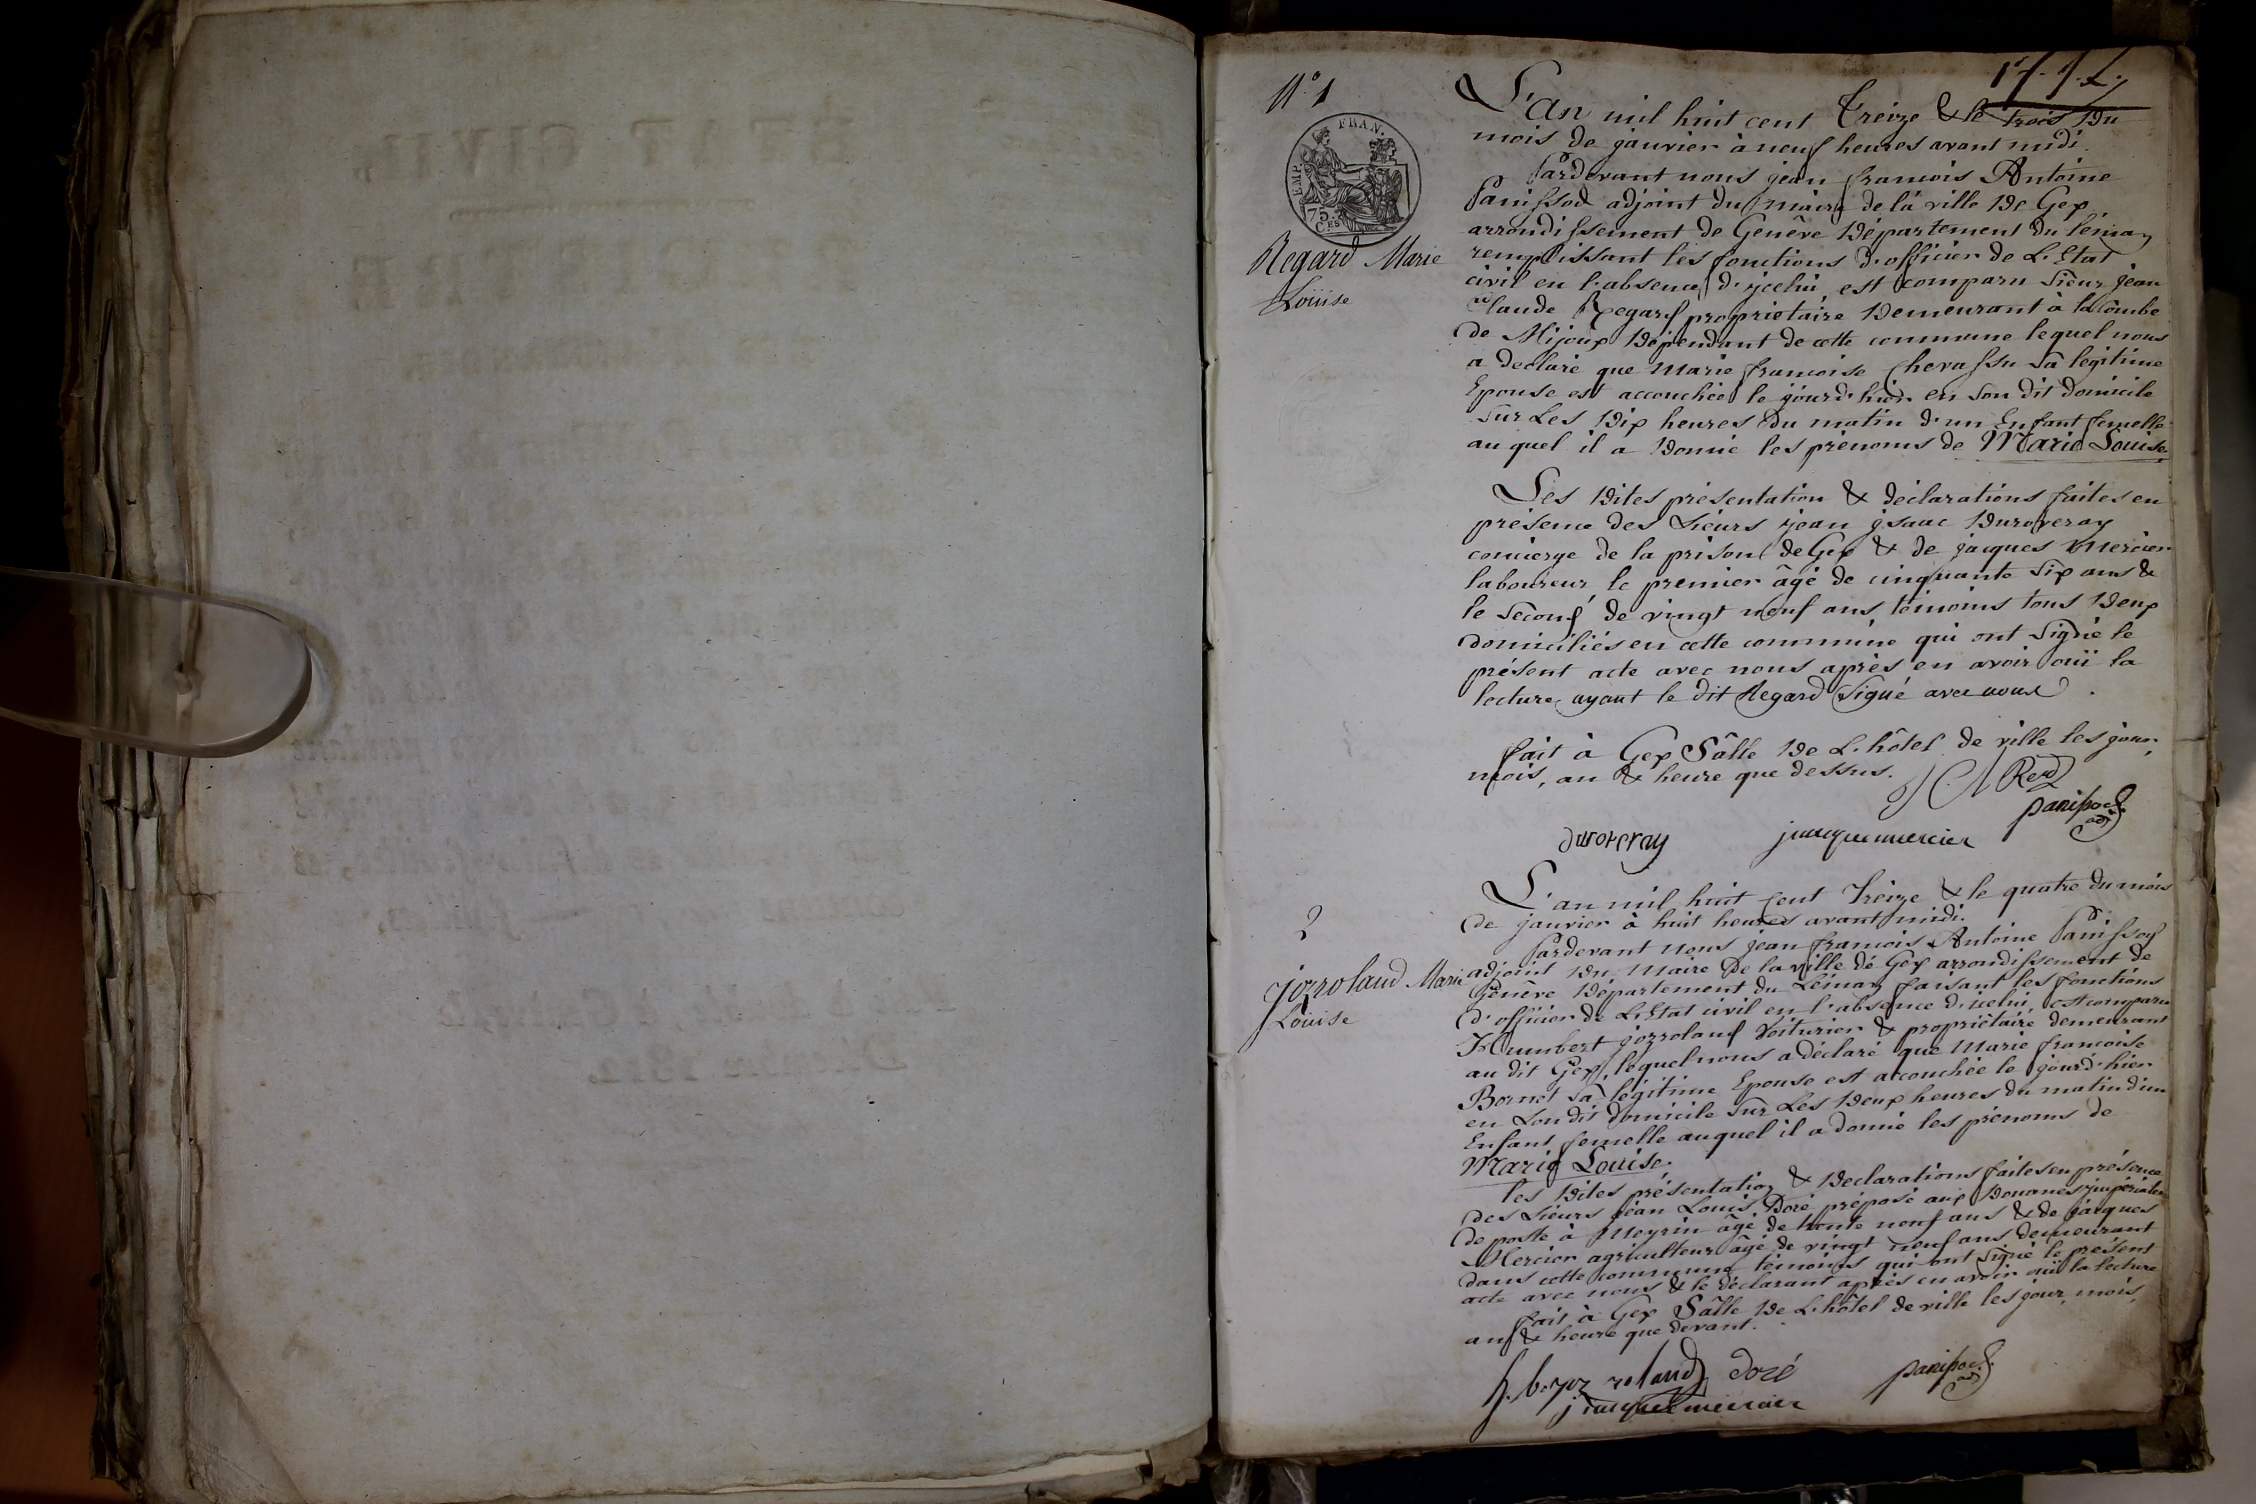 N.° 1
L'An mil huit cent Treize & le trois du
mois de janvier à neuf heures avant midi.
FRAN.
EMP.
75.
CES
Regard Marie
Loüise
Pardevant nous jean francois Antoine
Panissod adjoint du maire de la ville de Gex
arrondissement de Genêve Département du léman
remplissant les fonctions d'officier de L'Etat
civil en l'absence d'ycelui, est comparu Sieur jean
Claude Regard propriétaire Demeurant à la Combe
de Mijoux Dépendant de cette commune lequel nous
a declaré que Marie francoise Chevassu Sa légitime
Epouse est accouchée le jourd'hier en Son dit domicile
Sur Les Dix heures du matin d'un Enfant femelle
auquel il a Donné les prénoms de Marie Louise
Les Dites présentation & déclarations faites en
présence des Sieurs jean jsaac Duroveray
concierge de la prison de Gex & de jacques Mercier
laboureur, le premier âgé de cinquante Six ans &
le Second de vingt neuf ans, témoins tous Deux
domiciliés en cette commune qui ont Signé le
présent acte avec nous après en avoir ouï la
lecture, ayant le dit Regard Signé avec nous.
fait à Gex Sâlle De L'hôtel de ville les jour,
mois, an & heure que dessus.
panissod
adj
duroveray jacque mercier
L'an mil huit cent Treize & le quatre du mois
de janvier à huit heures avant midi.
2
jozroland Marie
Loüise
Pardevant nous jean francois Antoine Panissod
adjoint du Maire De la ville de Gex arrondissement de
Genêve Département du Léman faisant les fonctions
d'officier de L'Etat civil en l'absence d'icelui, est comparu
Humbert jozroland Voiturier & propriétaire demeurant
au dit Gex, lequel nous a déclaré que Marie francoise
Bornet Sa légitime Epouse est accouchée le jourd'hier
en Son dit domicile Sur Les Deux heures du matin d'un
Enfant femelle auquel il a donné les prénoms de
Marie Louise.
les Dites présentation & Declarations faites en présence
des Sieurs jean Louis Doré préposé aux Douanes impériales
de poste à Meyrin âgé de trente neuf ans & de jacques
Mercier agriculteur âgé de vingt neuf ans demeurant
dans cette commune témoins qui ont signé le présent
acte avec nous & le déclarant après en avoir ouï la lecture
fait à Gex Sâlle De L'hôtel de ville les jour, mois,
an & heure que devant.
doré panissod
adj
jacque mercier